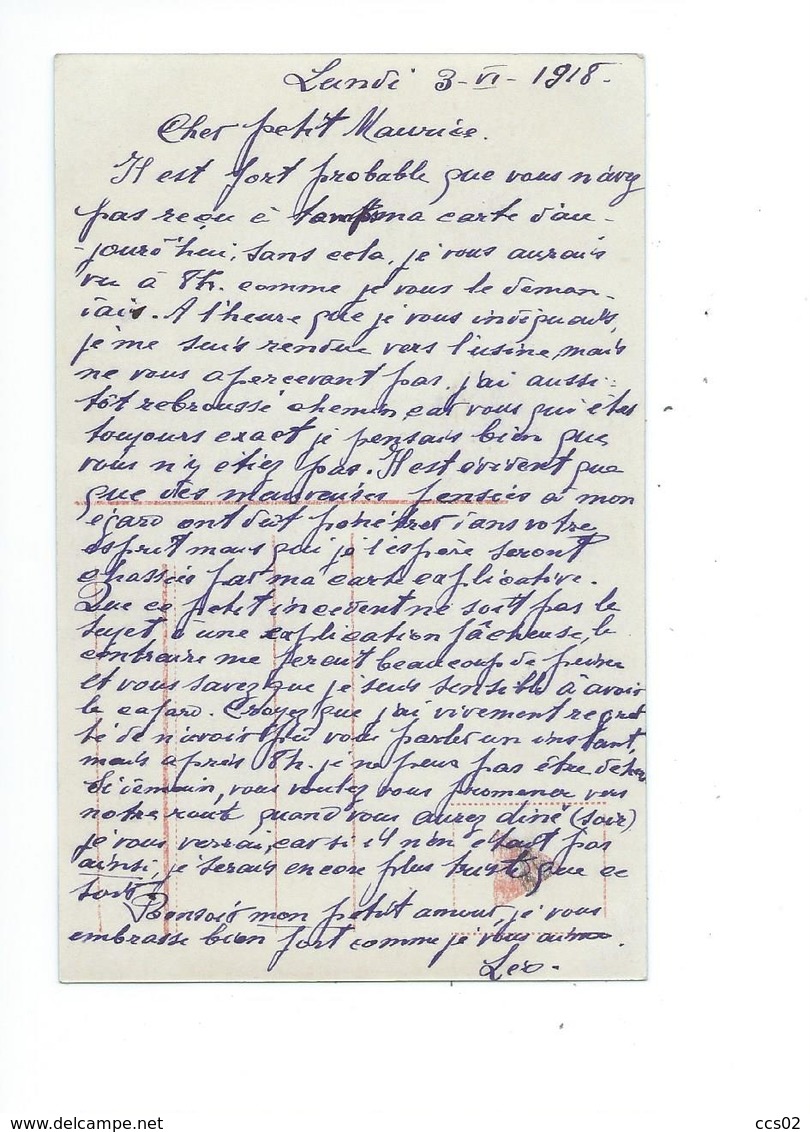 Lundi 3-VI-1918.
Cher petit Maurice.
Il est fort probable que vous n'avez
pas reçu à temps ma carte d'au-
-jourd'hui, sans cela, je vous aurais
vu à 8h. comme je vous le deman-
dais. A l'heure que je vous indiquais,
je me suis rendue vers l'usine, mais
ne vous apercevant pas, j'ai aussi-
tôt rebroussé chemin, car vous qui êtes
toujours exact je pensais bien que
vous n'y étiez pas. Il est évident que
que des mauvaises pensées à mon
égard ont dût pénétrer dans votre
esprit mais qui je l'espère seront
chassées par ma carte explicative.
Que ce petit incident ne soit pas le
sujet d'une explication fâcheuse, le
contraire me ferait beaucoup de peine
et vous savez que je suis sensible à avoir
le cafard. Croyez que j'ai vivement regret
té de n'avoir pû vous parler un instant,
mais après 8h. je ne peux pas être dehors
Si demain, vous voulez vous promener vers
notre route quand vous aurez diné (soir)
je vous verrai, car si il n'en était pas
ainsi, je serais encore plus triste que ce
soir.
Bonsoir mon petit amour, je vous
embrasse bien fort comme je vous aime.
Léo.
ccs02